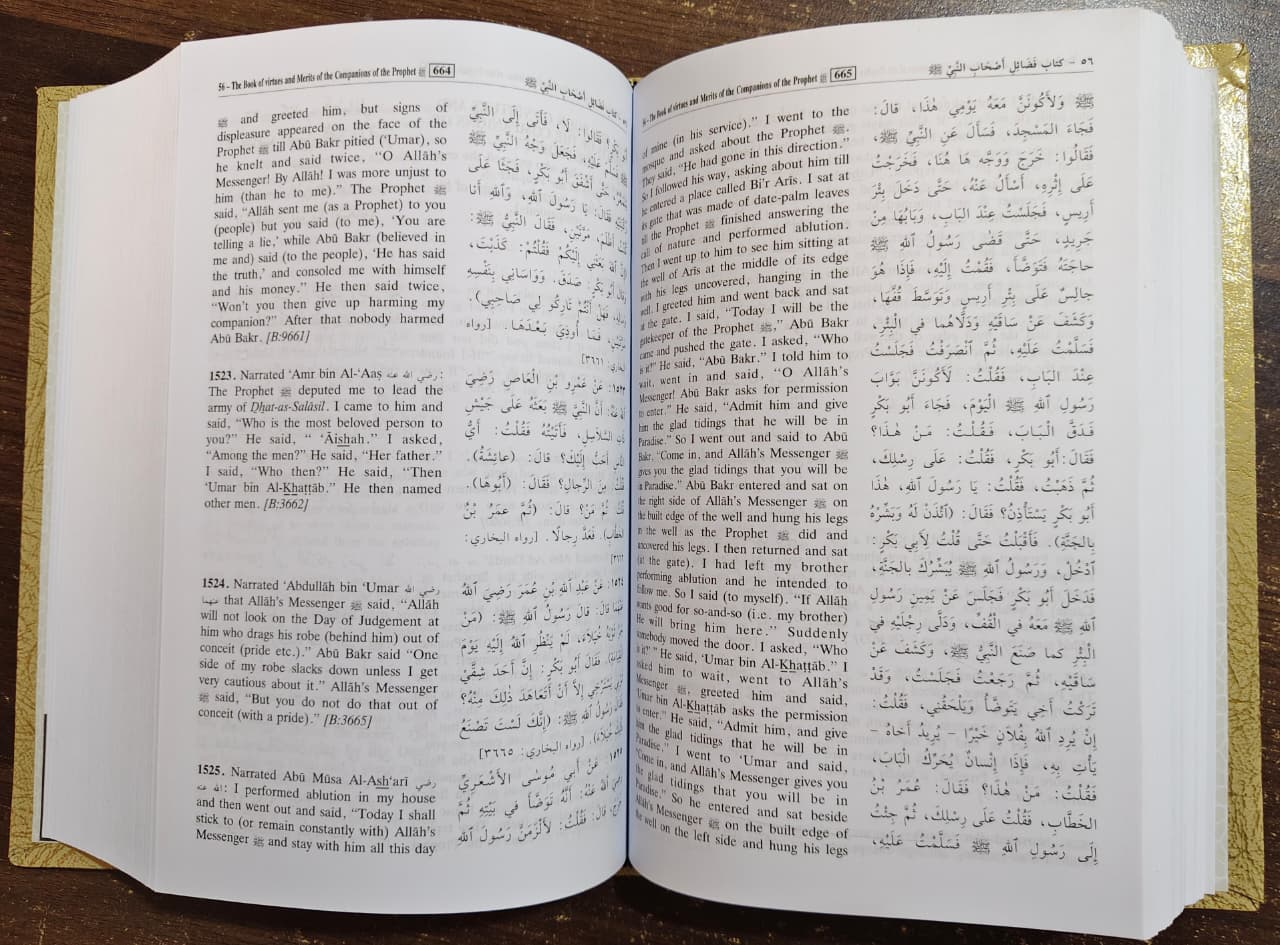 56 – The Book of virtues and Merits of the Companions of the Prophet ﷺ 664
٥٦ - كتاب فَضَائِل أَصْحَابِ النَّبِيِّ ﷺ
ﷺ and greeted him, but signs of
displeasure appeared on the face of the
Prophet ﷺ till Abū Bakr pitied (‘Umar), so
he knelt and said twice, “O Allāh’s
Messenger! By Allāh! I was more unjust to
him (than he to me).” The Prophet ﷺ
said, “Allāh sent me (as a Prophet) to you
(people) but you said (to me), ‘You are
telling a lie,’ while Abū Bakr (believed in
me and) said (to the people), ‘He has said
the truth,’ and consoled me with himself
and his money.” He then said twice,
“Won’t you give up harming my
companion?” After that nobody harmed
Abū Bakr. [B:9661]
1523. Narrated ‘Amr bin Al-‘Aaṣ رضي الله عنه:
The Prophet ﷺ deputed me to lead the
army of Dhat-as-Salāsil. I came to him and
said, “Who is the most beloved person to
you?” He said, “ ‘Āishah.” I asked,
“Among the men?” He said, “Her father.”
I said, “Who then?” He said, “Then
‘Umar bin Al-Khaṭṭāb.” He then named
other men. [B:3662]
1524. Narrated ‘Abdullāh bin ‘Umar رضي الله
عنهما that Allāh’s Messenger ﷺ said, “Allāh
will not look on the Day of Judgement at
him who drags his robe (behind him) out of
conceit (pride etc.).” Abū Bakr said “One
side of my robe slacks down unless I get
very cautious about it.” Allāh’s Messenger
ﷺ said, “But you do not do that out of
conceit (with a pride).” [B:3665]
1525. Narrated Abū Mūsa Al-Ash‘arī رضي
الله عنه: I performed ablution in my house
and then went out and said, “Today I shall
stick to (or remain constantly with) Allāh’s
Messenger ﷺ and stay with him all this day
بَكْرٍ؟ فَقالُوا: لَا، فَأَتَى إِلَى النَّبِيِّ
ﷺ فَسَلَّمَ عَلَيْهِ، فَجَعَلَ وَجْهُ النَّبِيِّ ﷺ
حَتَّى أَشْفَقَ أَبُو بَكْرٍ، فَجَثَا عَلَى
فَقالَ: يَا رَسُولَ اللهِ، وَاللهِ أَنَا
أَظْلَمَ، مَرَّتَيْنِ، فَقَالَ النَّبِيُّ ﷺ:
اللهَ بَعَثَنِي إِلَيْكُمْ فَقُلْتُمْ: كَذَبْتَ،
وَقَالَ أَبُو بَكْرٍ: صَدَقَ. وَوَاسَانِي بِنَفْسِهِ
وَمالِهِ، فَهَلْ أَنْتُمْ تَارِكُو لِي صَاحِبِي).
مَرَّتَيْنِ، فَمَا أُوذِيَ بَعْدَهَا. [رواه
البخاري: ٣٦٦١]
١٥٢٣: عَنْ عَمْرِو بْنِ الْعَاصِ رَضِيَ
اللهُ عَنْهُ: أَنَّ النَّبِيَّ ﷺ بَعَثَهُ عَلَى جَيْشِ
ذَاتِ السَّلَاسِلِ، فَأَتَيْتُهُ فَقُلْتُ: أَيُّ
النَّاسِ أَحَبُّ إِلَيْكَ؟ قَالَ: (عَائِشَةُ).
قُلْتُ مِنَ الرِّجالِ؟ فَقَالَ: (أَبُوهَا).
قُلْتُ ثُمَّ مَنْ؟ قالَ: (ثُمَّ عُمَرُ بْنُ
الْخَطَّابِ). فَعَدَّ رِجالًا. [رواه البخاري:
٣٦٦٢]
١٥٢٤: عَنْ عَبْدِ اللهِ بْنِ عُمَرَ رَضِيَ اللهُ
عَنْهُمَا قالَ: قالَ رَسُولُ اللهِ ﷺ: (مَنْ
جَرَّ ثَوْبَهُ خُيَلَاءَ، لَمْ يَنْظُرِ اللهُ إِلَيْهِ يَوْمَ
الْقِيَامَةِ). فَقَالَ أَبُو بَكْرٍ: إِنَّ أَحَدَ شِقَّيْ
ثَوْبِي يَسْتَرْخِي إِلَّا أَنْ أَتَعَاهَدَ ذٰلِكَ مِنْهُ؟
فَقَالَ رَسُولُ اللهِ ﷺ: (إِنَّكَ لَسْتَ تَصْنَعُ
خُيَلَاءَ). [رواه البخاري: ٣٦٦٥]
١٥٢٥: عَنْ أَبِي مُوسَى الْأَشْعَرِيِّ
رَضِيَ اللهُ عَنْهُ: أَنَّهُ تَوَضَّأَ فِي بَيْتِهِ ثُمَّ
خَرَجَ، قالَ: فَقُلْتُ: لَأَلْزَمَنَّ رَسُولَ اللهِ
56 – The Book of virtues and Merits of the Companions of the Prophet ﷺ 665
٥٦ - كتاب فَضَائِلِ أَصْحَابِ النَّبِيِّ ﷺ
of mine (in his service).” I went to the
mosque and asked about the Prophet ﷺ.
They said, “He had gone in this direction.”
So I followed his way, asking about him till
he entered a place called Bi’r Arīs. I sat at
its gate that was made of date-palm leaves
till the Prophet ﷺ finished answering the
call of nature and performed ablution.
Then I went up to him to see him sitting at
the well of Arīs at the middle of its edge
with his legs uncovered, hanging in the
well. I greeted him and went back and sat
at the gate. I said, “Today I will be the
gatekeeper of the Prophet ﷺ,” Abū Bakr
came and pushed the gate. I asked, “Who
is it?” He said, “Abū Bakr.” I told him to
wait, went in and said, “O Allāh’s
Messenger! Abū Bakr asks for permission
to enter.” He said, “Admit him and give
him the glad tidings that he will be in
Paradise.” So I went out and said to Abū
Bakr, “Come in, and Allāh’s Messenger ﷺ
gives you the glad tidings that you will be
in Paradise.” Abū Bakr entered and sat on
the right side of Allāh’s Messenger ﷺ on
the built edge of the well and hung his legs
in the well as the Prophet ﷺ did and
uncovered his legs. I then returned and sat
(at the gate). I had left my brother
performing ablution and he intended to
follow me. So I said (to myself). “If Allāh
wants good for so-and-so (i.e. my brother)
He will bring him here.” Suddenly
somebody moved the door. I asked, “Who
is it?” He said, ‘Umar bin Al-Khaṭṭāb.” I
asked him to wait, went to Allāh’s
Messenger ﷺ, greeted him and said,
‘Umar bin Al-Khaṭṭāb asks the permission
to enter.” He said, “Admit him, and give
him the glad tidings that he will be in
Paradise.” I went to ‘Umar and said,
“Come in, and Allāh’s Messenger gives you
the glad tidings that you will be in
Paradise.” So he entered and sat beside
Allāh’s Messenger ﷺ on the built edge of
the well on the left side and hung his legs
ﷺ وَلَأَكُونَنَّ مَعَهُ يَوْمِي هٰذَا، قَالَ:
فَجَاءَ الْمَسْجِدَ، فَسَأَلَ عَنِ النَّبِيِّ ﷺ،
فَقَالُوا: خَرَجَ وَوَجَّهَ هَا هُنَا، فَخَرَجْتُ
عَلَى إِثْرِهِ، أَسْأَلُ عَنْهُ، حَتَّى دَخَلَ بِئْرَ
أَرِيسٍ، فَجَلَسْتُ عِنْدَ الْبَابِ، وَبَابُهَا مِنْ
جَرِيدٍ، حَتَّى قَضَى رَسُولُ اللهِ ﷺ
حاجَتَهُ فَتَوَضَّأَ، فَقُمْتُ إِلَيْهِ، فَإِذَا هُوَ
جالِسٌ عَلَى بِئْرِ أَرِيسٍ وَتَوَسَّطَ قُفَّهَا،
وَكَشَفَ عَنْ سَاقَيْهِ وَدَلَّاهُما في الْبِئْرِ،
فَسَلَّمْتُ عَلَيْهِ، ثُمَّ انْصَرَفْتُ فَجَلَسْتُ
عِنْدَ الْبَابِ، فَقُلْتُ: لَأَكُونَنَّ بَوَّابَ
رَسُولِ اللهِ ﷺ الْيَوْمَ، فَجَاءَ أَبُو بَكْرٍ
فَدَقَّ الْبَابَ، فَقُلْتُ: مَنْ هٰذَا؟
فَقَالَ: أَبُو بَكْرٍ، فَقُلْتُ: عَلَى رِسْلِكَ،
ثُمَّ ذَهَبْتُ، فَقُلْتُ: يَا رَسُولَ اللهِ، هٰذَا
أَبُو بَكْرٍ يَسْتَأْذِنُ؟ فَقَالَ: (ائْذَنْ لَهُ وَبَشِّرْهُ
بِالجَنَّةِ). فَأَقْبَلْتُ حَتَّى قُلْتُ لِأَبِي بَكْرٍ:
ادْخُلْ، وَرَسُولُ اللهِ ﷺ يُبَشِّرُكَ بالجَنَّةِ،
فَدَخَلَ أَبُو بَكْرٍ فَجَلَسَ عَنْ يَمِينِ رَسُولِ
اللهِ ﷺ مَعَهُ في الْقُفِّ، وَدَلَّى رِجْلَيْهِ في
الْبِئْرِ كما صَنَعَ النَّبِيُّ ﷺ، وَكَشَفَ عَنْ
سَاقَيْهِ، ثُمَّ رَجَعْتُ فَجَلَسْتُ، وَقَدْ
تَرَكْتُ أَخِي يَتَوَضَّأُ وَيَلْحَقُنِي، فَقُلْتُ:
إِنْ يُرِدِ اللهُ بِفُلَانٍ خَيْرًا – يُرِيدُ أَخاهُ –
يَأْتِ بِهِ، فَإِذَا إِنْسَانٌ يُحَرِّكُ الْبَابَ،
فَقُلْتُ: مَنْ هٰذَا؟ فَقالَ: عُمَرُ بْنُ
الخَطَّابِ، فَقُلْتُ عَلَى رِسْلِكَ، ثُمَّ جِئْتُ
إِلَى رَسُولِ اللهِ ﷺ فَسَلَّمْتُ عَلَيْهِ،